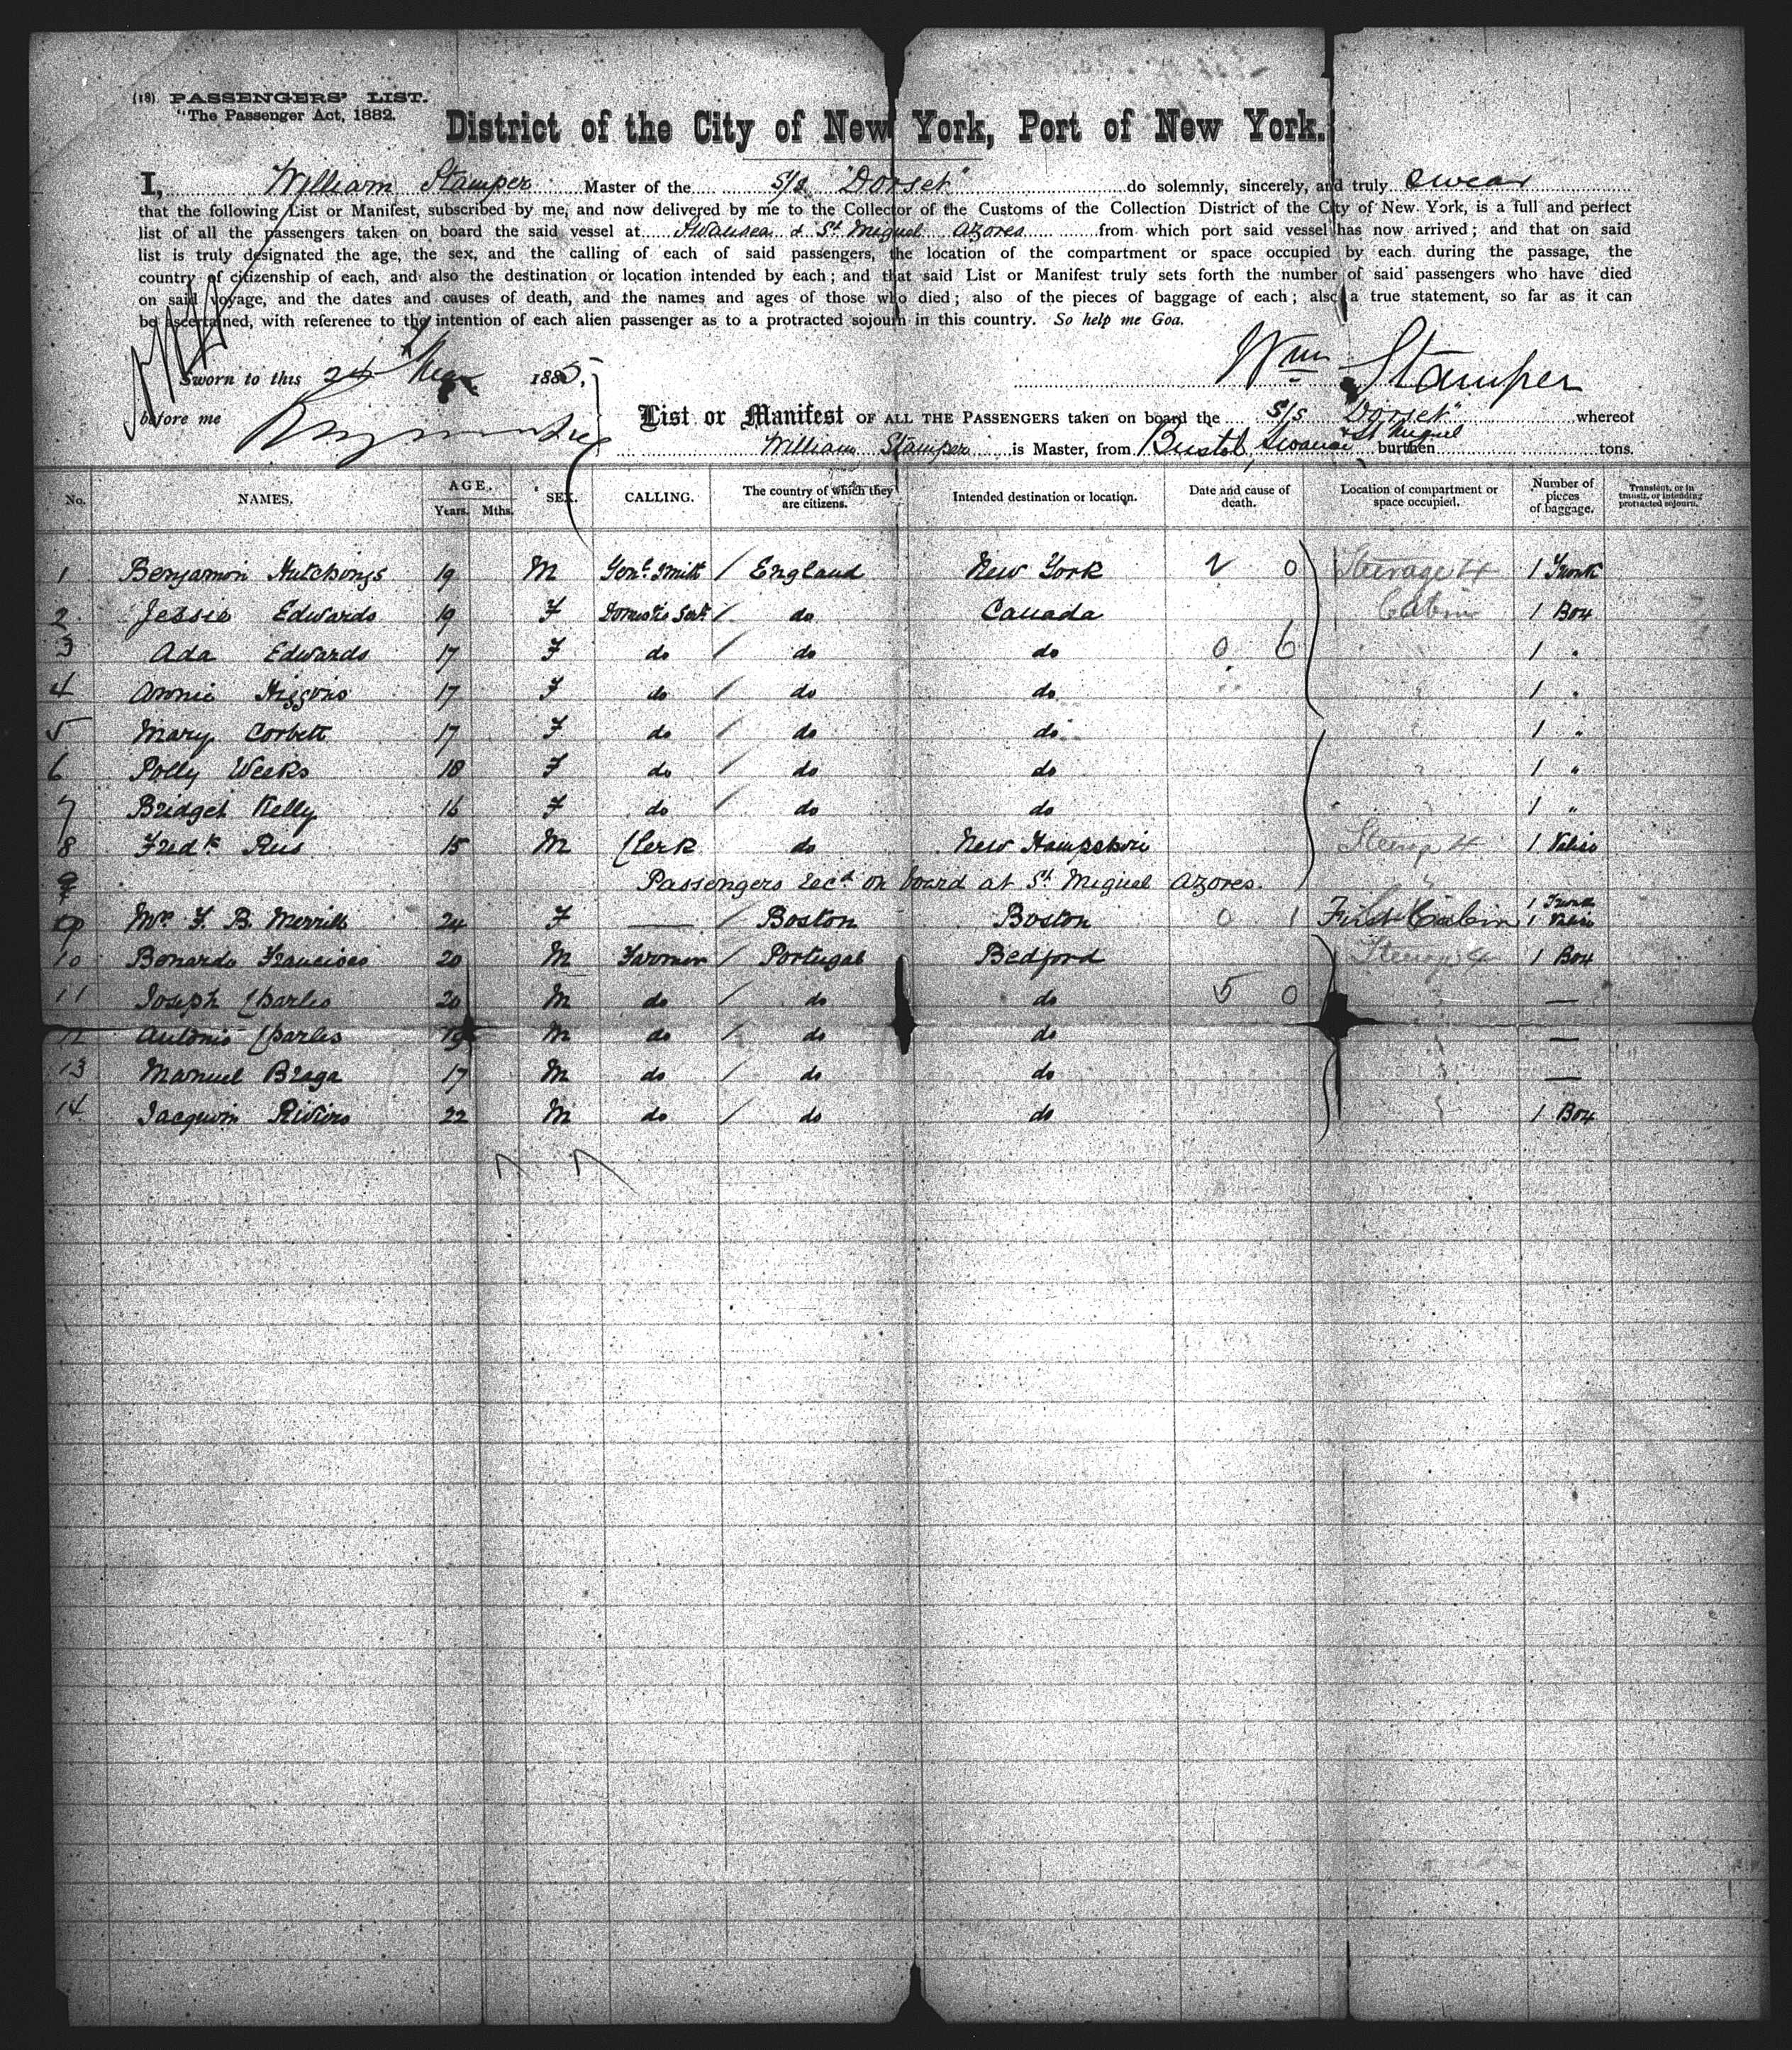 (18) PASSENGERS' LIST.
"The Passenger Act, 1882.
District of the City of New York, Port of New York.
I, William Stamper Master of the S/s "Dorset" do solemnly, sincerely, and truly swear
that the following List or Manifest, subscribed by me, and now delivered by me to the Collector of the Customs of the Collection District of the City of New York, is a full and perfect
list of all the passengers taken on board the said vessel at Swansea & St. Miguel Azores from which port said vessel has now arrived; and that on said
list is truly designated the age, the sex, and the calling of each of said passengers, the location of the compartment or space occupied by each during the passage, the
country of citizenship of each, and also the destination or location intended by each; and that said List or Manifest truly sets forth the number of said passengers who have died
on said voyage, and the dates and causes of death, and the names and ages of those who died; also of the pieces of baggage of each; also a true statement, so far as it can
be ascertained, with reference to the intention of each alien passenger as to a protracted sojourn in this country. So help me God.
Wm Stamper
Sworn to this 24 1885,
before me
List or Manifest OF ALL THE PASSENGERS taken on board the S/s "Dorset" whereof
William Stamper is Master, from Bristol, Swansea & St Miguel burthen tons.
No. NAMES. AGE. Years. Mths. SEX. CALLING. The country of which they are citizens. Intended destination or location. Date and cause of death. Location of compartment or space occupied. Number of pieces of baggage. Transient, or in transit, or intending protracted sojourn.
1 Benjamin Hutchings 19 M Genl. Smith / England New York 2 0 Steerage 4 1 Trunk
2 Jessie Edwards 19 F Domestic Servt / do Canada Cabin 1 Box
3 Ada Edwards 17 F do / do do 0 6 1 "
4 Annie Higgins 17 F do / do do 1 "
5 Mary Corbett 17 F do / do do 1 "
6 Polly Weeks 18 F do / do do 1 "
7 Bridget Kelly 16 F do / do do 1 "
8 Fredk Rees 15 M Clerk do New Hampshire Steerage 4 1 Valise
9 Passengers recd on board at St. Miguel Azores.
9 Mrs F. B. Merrill 24 F — / Boston Boston 0 1 First Cabin 1 Trunk 1 Valise
10 Bonardo Francisco 20 M Farmer / Portugal Bedford Steerage 4 1 Box
11 Joseph Charles 20 M do / do do 5 0 —
12 Antonio Charles 19 M do / do do —
13 Manuel Braga 17 M do / do do —
14 Jacquim Riviero 22 M do / do do 1 Box